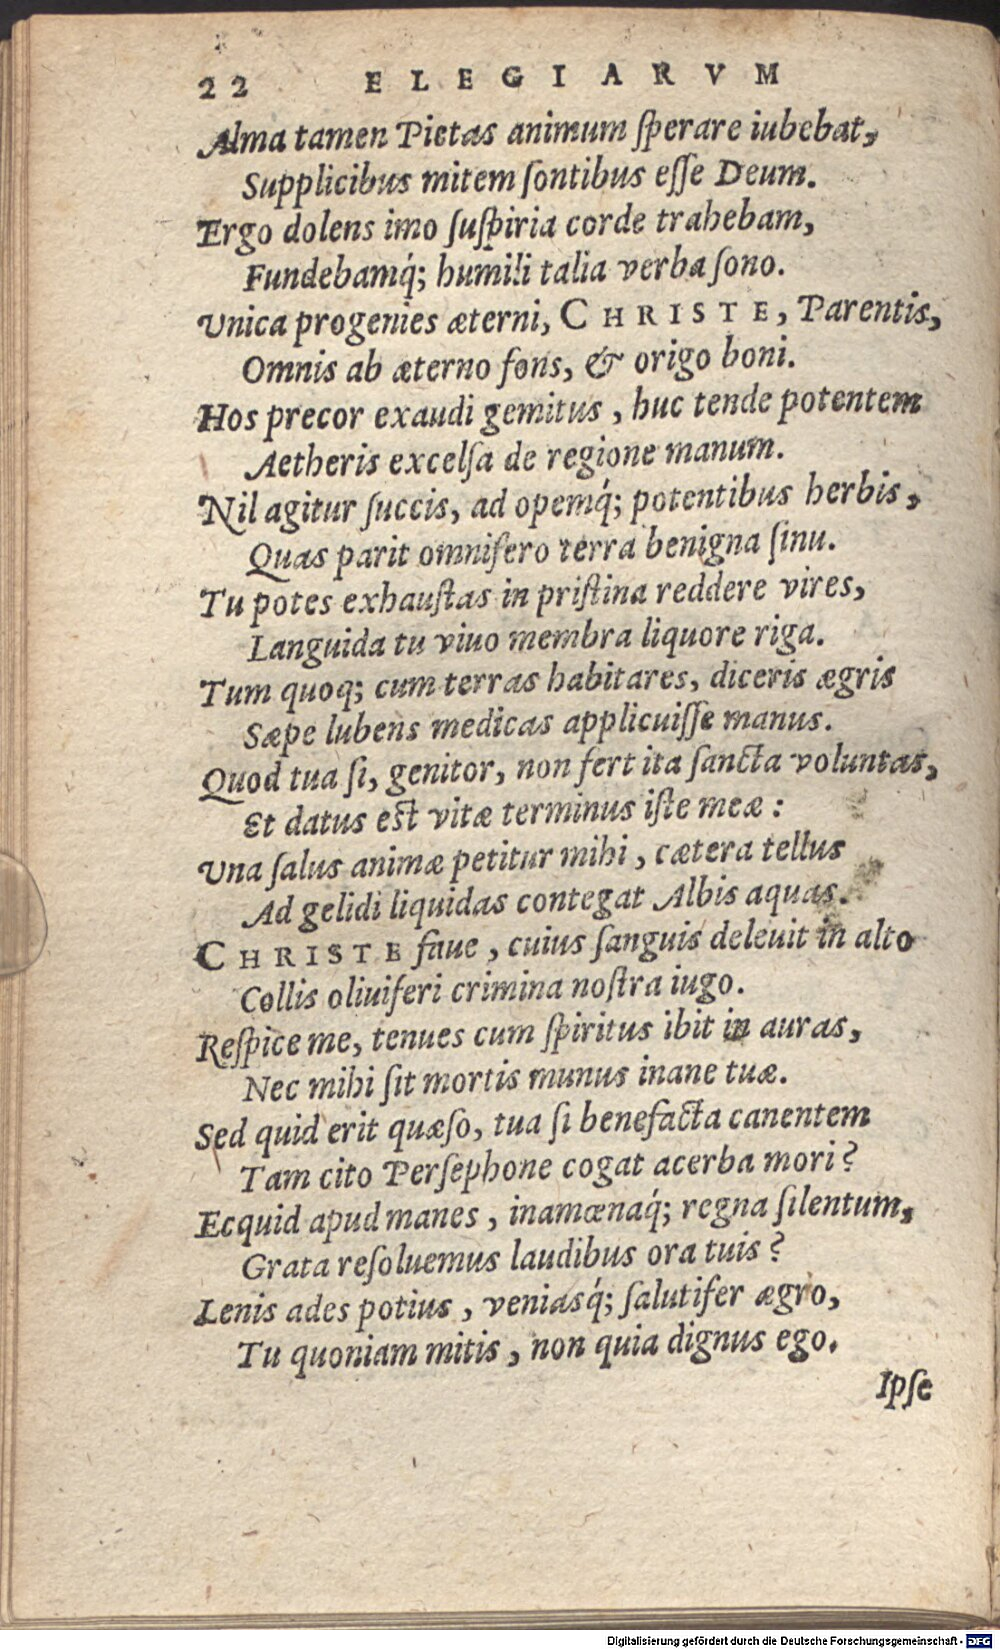 22 ELEGIARVM
Alma tamen Pietas animum ſperare iubebat,
Supplicibus mitem ſontibus eſſe Deum.
Ergo dolens imo ſuſpiria corde trahebam,
Fundebamq́; humili talia verba ſono.
Vnica progenies æterni, CHRISTE, Parentis,
Omnis ab æterno fons, & origo boni.
Hos precor exaudi gemitus, huc tende potentem
Aetheris excelſa de regione manum.
Nil agitur ſuccis, ad opemq́; potentibus herbis,
Quas parit omnifero terra benigna ſinu.
Tu potes exhauſtas in priſtina reddere vires,
Languida tu viuo membra liquore riga.
Tum quoq; cum terras habitares, diceris ægris
Sæpe lubens medicas applicuiſſe manus.
Quod tua ſi, genitor, non fert ita ſancta voluntas,
Et datus eſt vitæ terminus iſte meæ:
Vna ſalus animæ petitur mihi, cætera tellus
Ad gelidi liquidas contegat Albis aquas.
CHRISTE faue, cuius ſanguis deleuit in alto
Collis oliuiferi crimina noſtra iugo.
Reſpice me, tenues cum ſpiritus ibit in auras,
Nec mihi ſit mortis munus inane tuæ.
Sed quid erit quæſo, tua ſi benefacta canentem
Tam cito Perſephone cogat acerba mori?
Ecquid apud manes, inamœnaq́; regna ſilentum,
Grata reſoluemus laudibus ora tuis?
Lenis ades potius, veniasq́; ſalutifer ægro,
Tu quoniam mitis, non quia dignus ego.
Ipſe
Digitalisierung gefördert durch die Deutsche Forschungsgemeinschaft - DFG